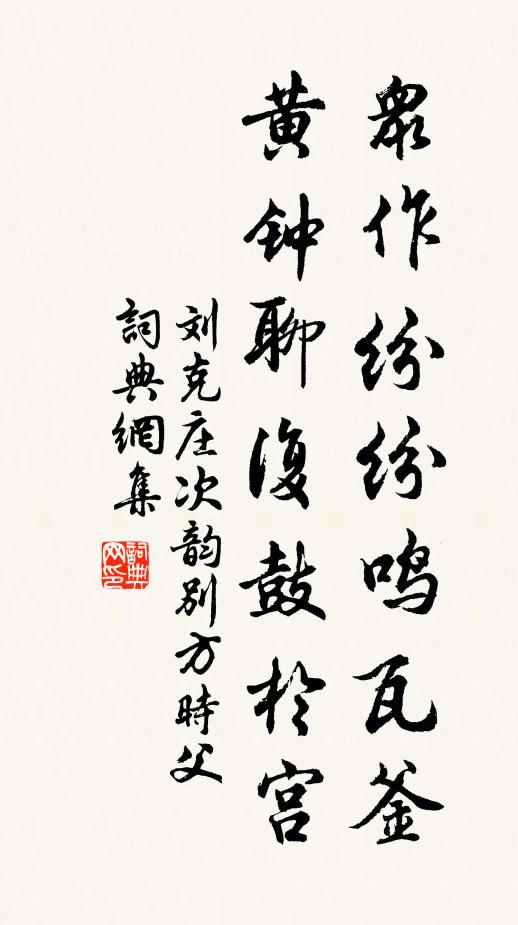 眾作纷纷鸣瓦釜
黄钟聊復鼓於宫
刘克庄次韵别方時父
詞典網集
詞典网印